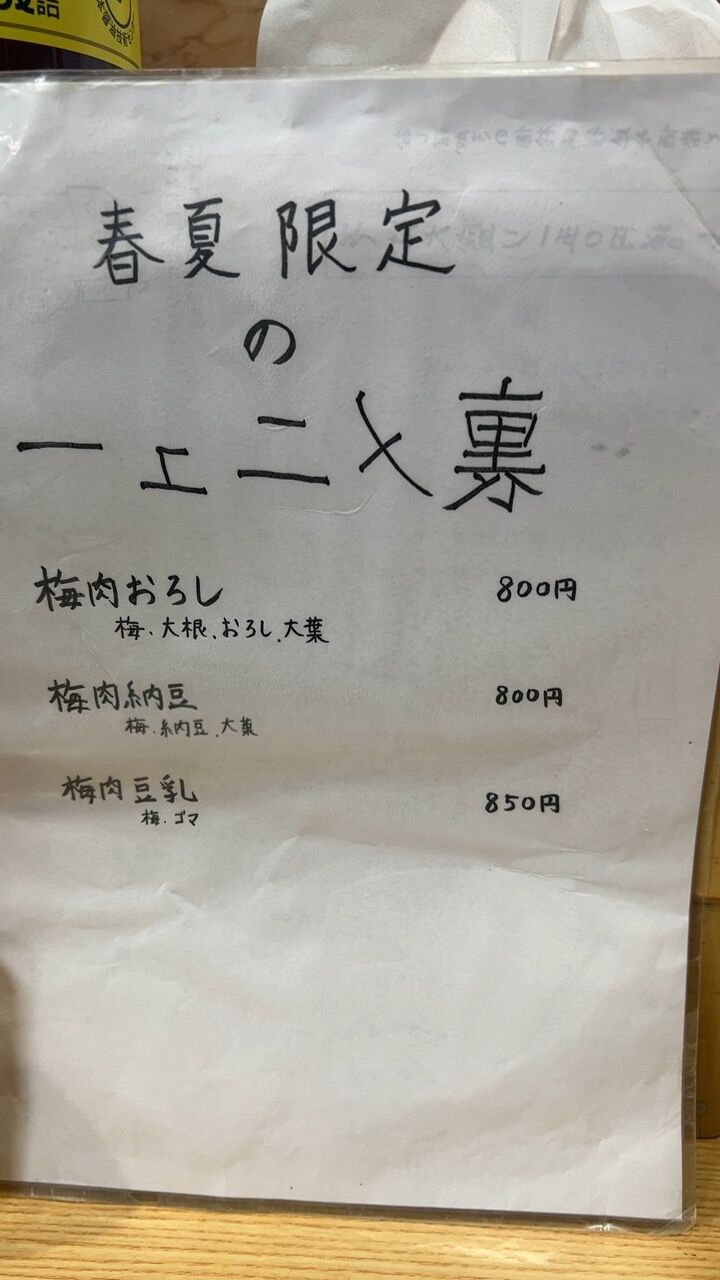 詰
春夏限定
の
ーュニメ裏
梅肉おろし 800円
梅、大根、おろし、大葉
梅肉納豆 800円
梅、納豆、大葉
梅肉豆乳 850円
梅、ゴマ